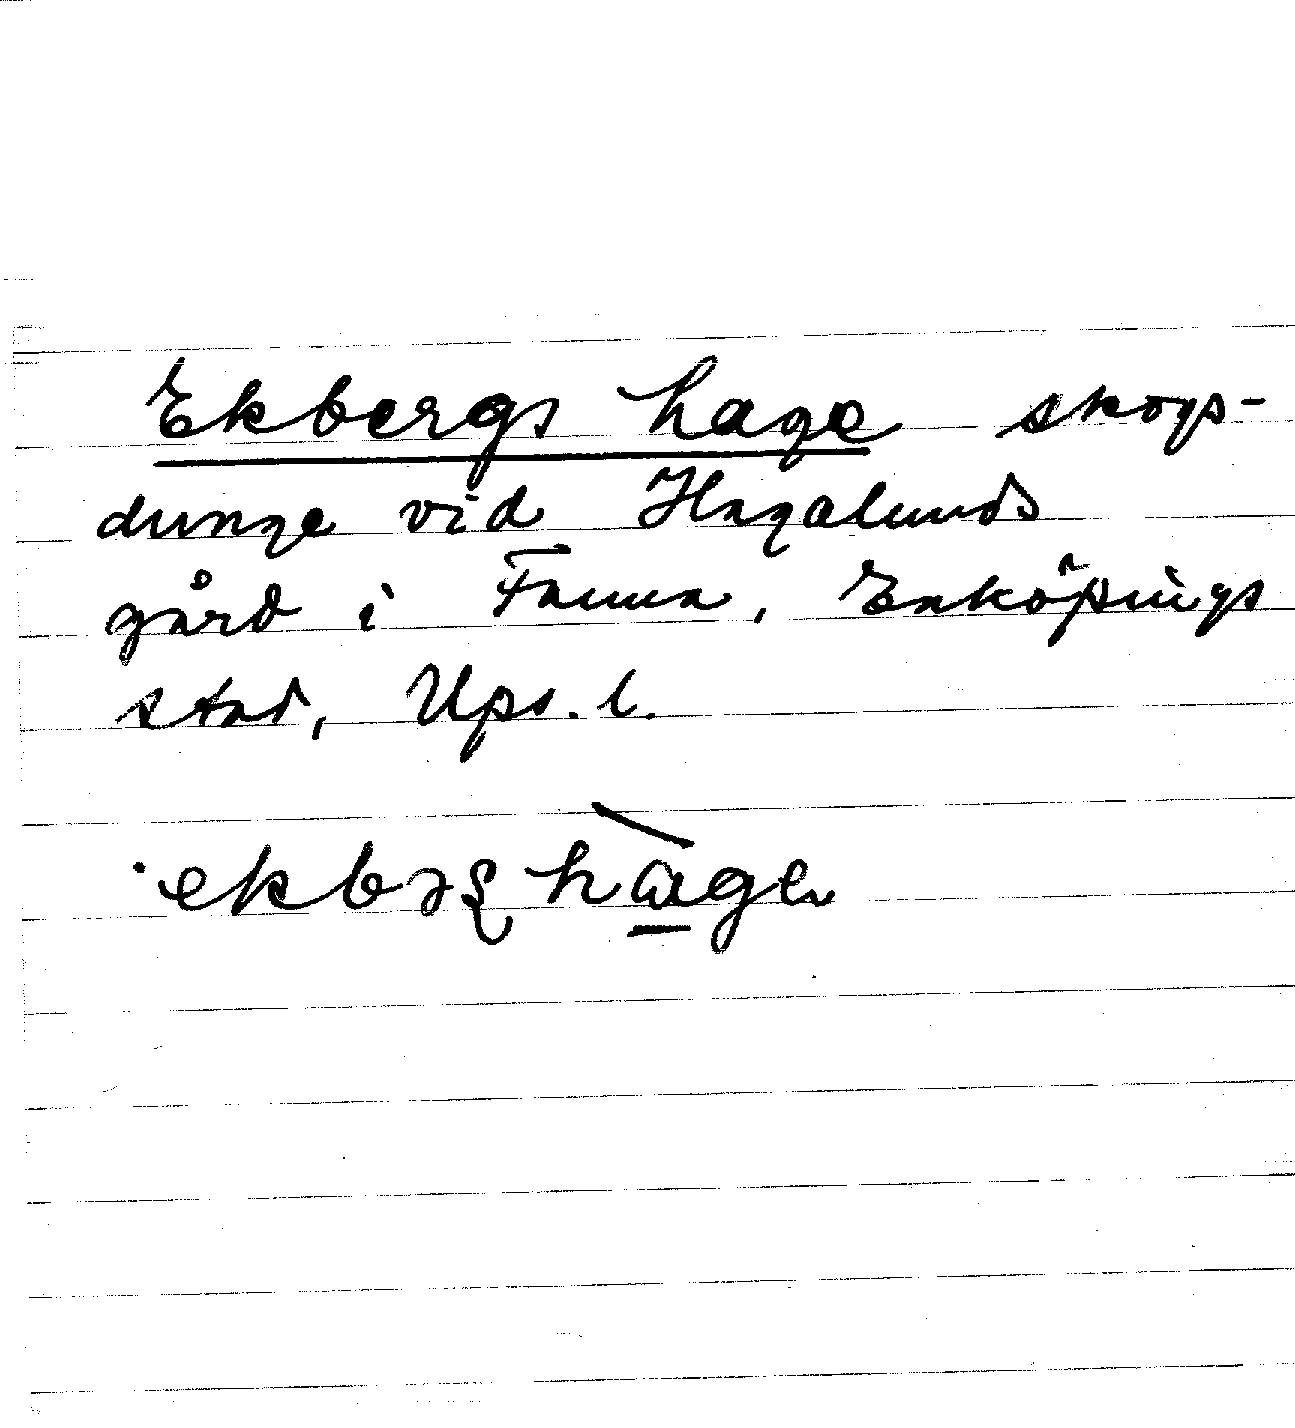 Ekbergs hage skogs-
dunge vid Hagalunds
gård i Fanna, Enköpings
stad, Ups. l.
hage